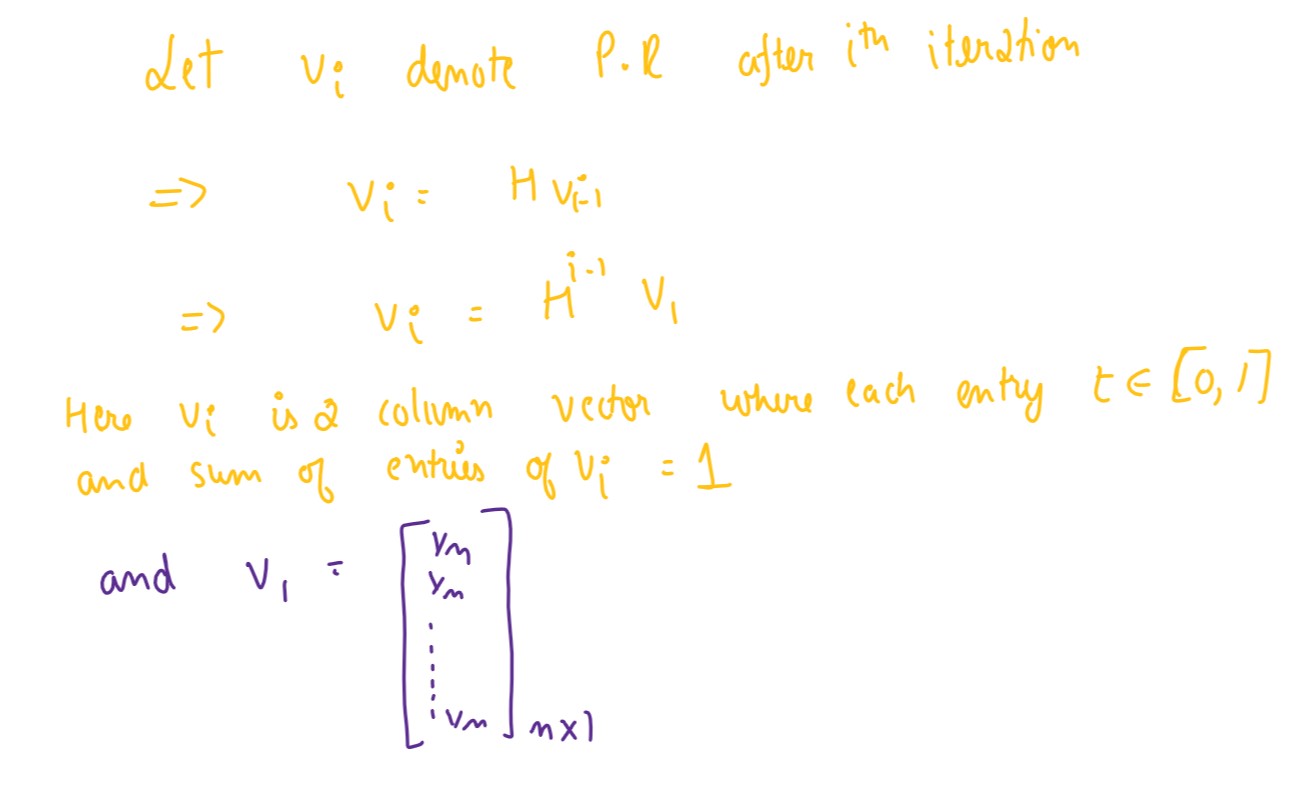 Let vᵢ denote P.R after iᵗʰ iteration
=> vᵢ = H vᵢ₋₁
=> vᵢ = Hⁱ⁻¹ V₁
Here vᵢ is a column vector where each entry t ∈ [0, 1]
and sum of entries of vᵢ = 1
and V₁ = [
1/n
1/n
⋮
1/n
] n×1